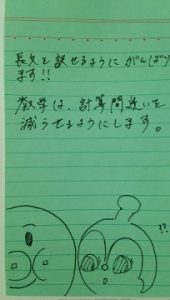 長文を訳せるようにがんばり
ます!!
数学は、計算間違いを
減らせるようにします。
!?